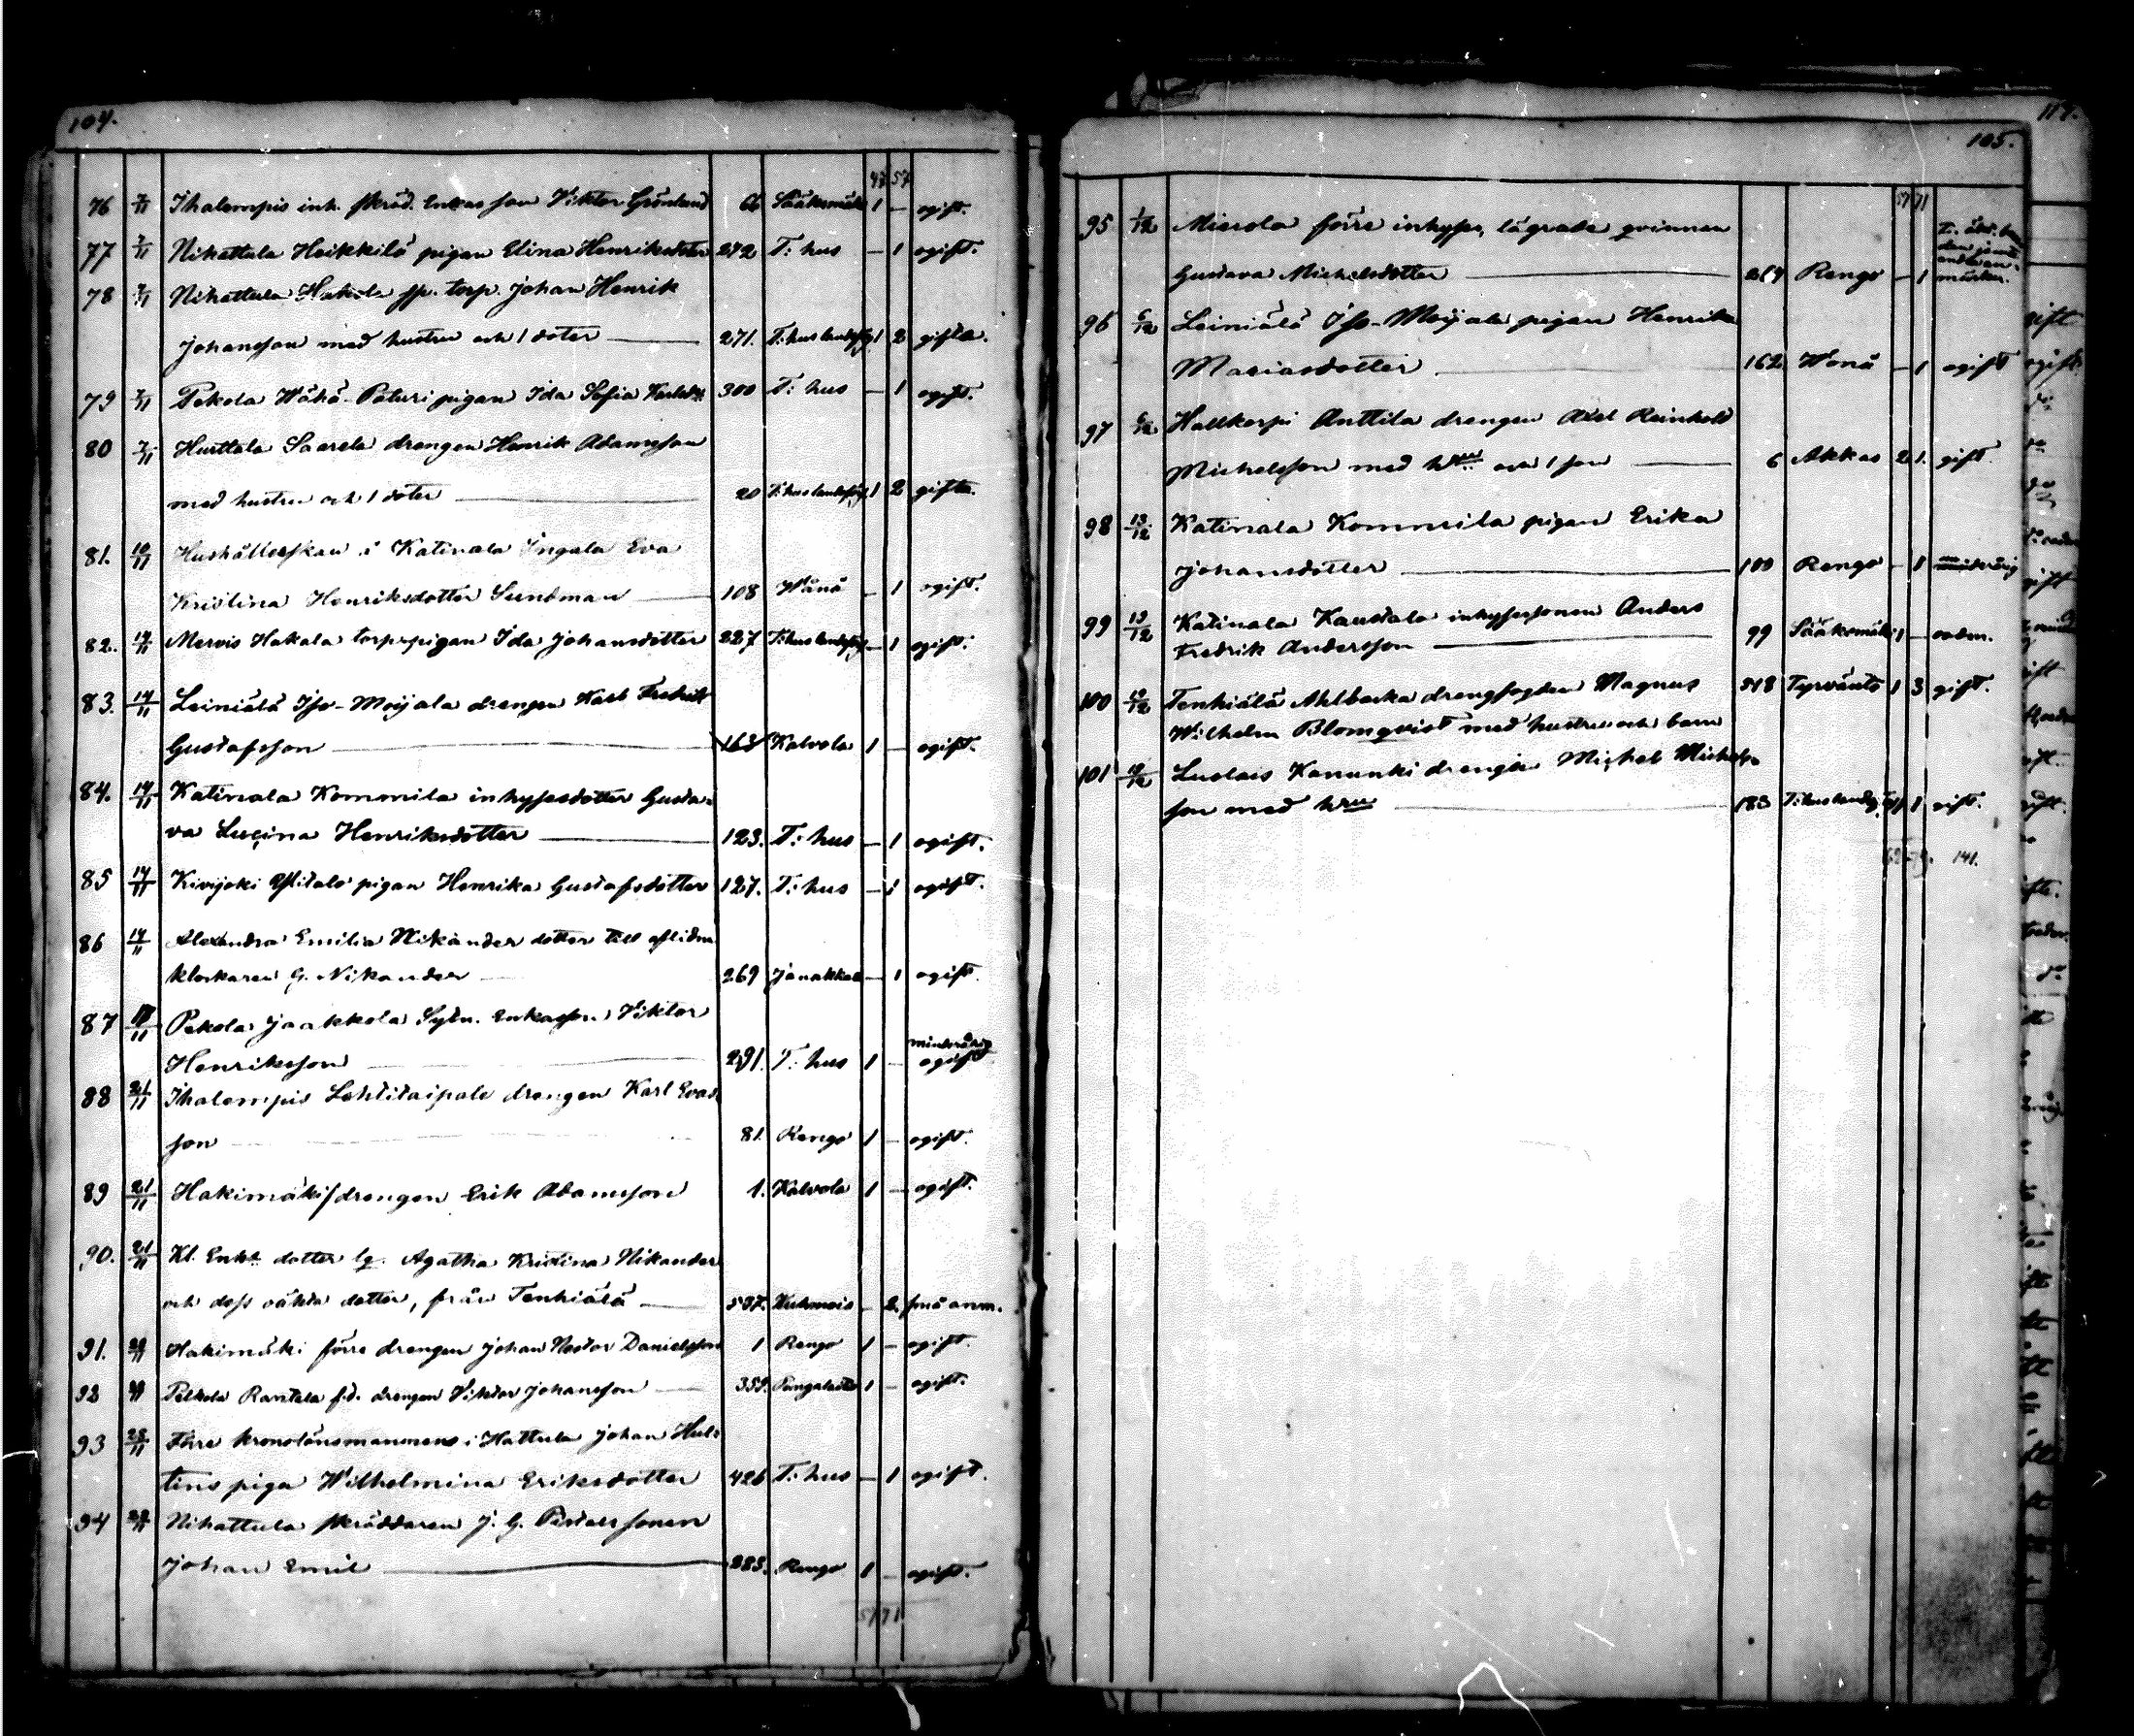 104.
47 57
76 7/11 Ihalempis inh. skräd. Enkas son Viktor Grönlund 66 Sääksmäki 1 – ogift.
77 7/11 Nihattula Heikkilä pigan Elina Henriksdotter 272 T: hus – 1 ogift.
78 7/11 Nihattula Hakola sp. torp. Johan Henrik
Johansson med hustru och 1 doter 271. T: hus landsförs. 1 2 gifta.
79 7/11 Pekola Wähä-Paturi pigan Ida Sofia Karlsdr. 300 T: hus – 1 ogift.
80 7/11 Hurttala Saarela drengen Henrik Adamsson
med hustru och 1 doter 20 T: hus landsförs. 1 2 gifta.
81. 10/11 Hushållerskan i Katinala Ingala Eva
Kristina Henriksdotter Sundman 108 Wånå – 1 ogift.
82. 14/11 Mervis Hakala torpspigan Ida Johansdotter 227 T: hus landsförs. – 1 ogift.
83. 14/11 Leiniälä Iso-Moijala drengen Karl Fredrik
Gustafsson 163 Kalvola 1 – ogift.
84. 14/11 Katinala Kommila inhysesdotter Gusta-
va Lucina Henriksdotter 123. T: hus – 1 ogift.
85 14/11 Kivijoki Ylidalo pigan Henrika Gustafsdotter 127. T: hus – 1 ogift.
86 14/11 Alexandra Emilia Nikander dotter till aflidne
klockaren G. Nikander 269 Janakkala – 1 ogift.
87 11 Pekola Jaakkola Sytn. Enkasson Viktor
Henriksson 291. T: hus 1 – minderårig ogift
88 21/11 Ihalempis Lehtitaipale drengen Karl Evas-
son 81. Rengo 1 – ogift.
89 21/11 Hakimäki drengen Erik Adamsson 1. Kalvola 1 – ogift.
90. 21/11 Kl. Enk. dotter lg. Agatha Kristina Nikander
och dess oäkta dotter, från Tenhiälä 507. Kuhmois – 2. små anm.
91. 11 Hakimäki förre drengen Johan Nestor Danielsson 1 Rengo 1 – ogift.
92 11 Pelkola Rantala f.d. drengen Viktor Johansson 359. Pungalaitio 1 – ogift.
93 28/11 Förre kronolänsmannens i Hattula Johan Hul-
tins piga Wilhelmina Eriksdotter 426 T: hus – 1 ogift.
94 28/11 Nihattula skräddaren J. G. Pistolers sonen
Johan Emil 283. Rengo 1 – ogift.
57 71
117.
105.
57 71
95 1/12 Mierola förre inhyses, lägrade qvinnan
Gustava Michelsdotter 214 Rengo – 1
96 6/12 Leiniälä Iso-Moijala pigan Henrika
Mariasdotter 162 Wonå – 1 ogift
97 6/12 Hallkorpi Anttila drengen Axel Reinhold
Michelsson med hru och 1 son 6 Akkas 2 1. gift
98 13/12 Katinala Kommila pigan Erika
Johansdotter 100 Rengo – 1 minderårig
99 13/12 Katinala Kaustala inhysessonen Anders
Fredrik Andersson 99 Sääksmäki 1 – oadm.
100 19/12 Tenhiälä Ahlbacka drengfogden Magnus 518 Tyrväntö 1 3 gift.
Wilhelm Blomqvist med hustru och barn
101 19/12 Luolais Kanunki drengen Michel Michels-
son med hru 183 T: hus landsförs. 1 1 gift.
62 79. 141.